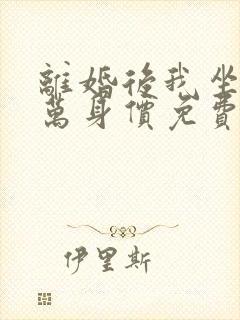 離婚後我坐
萬身價免費
伊里斯